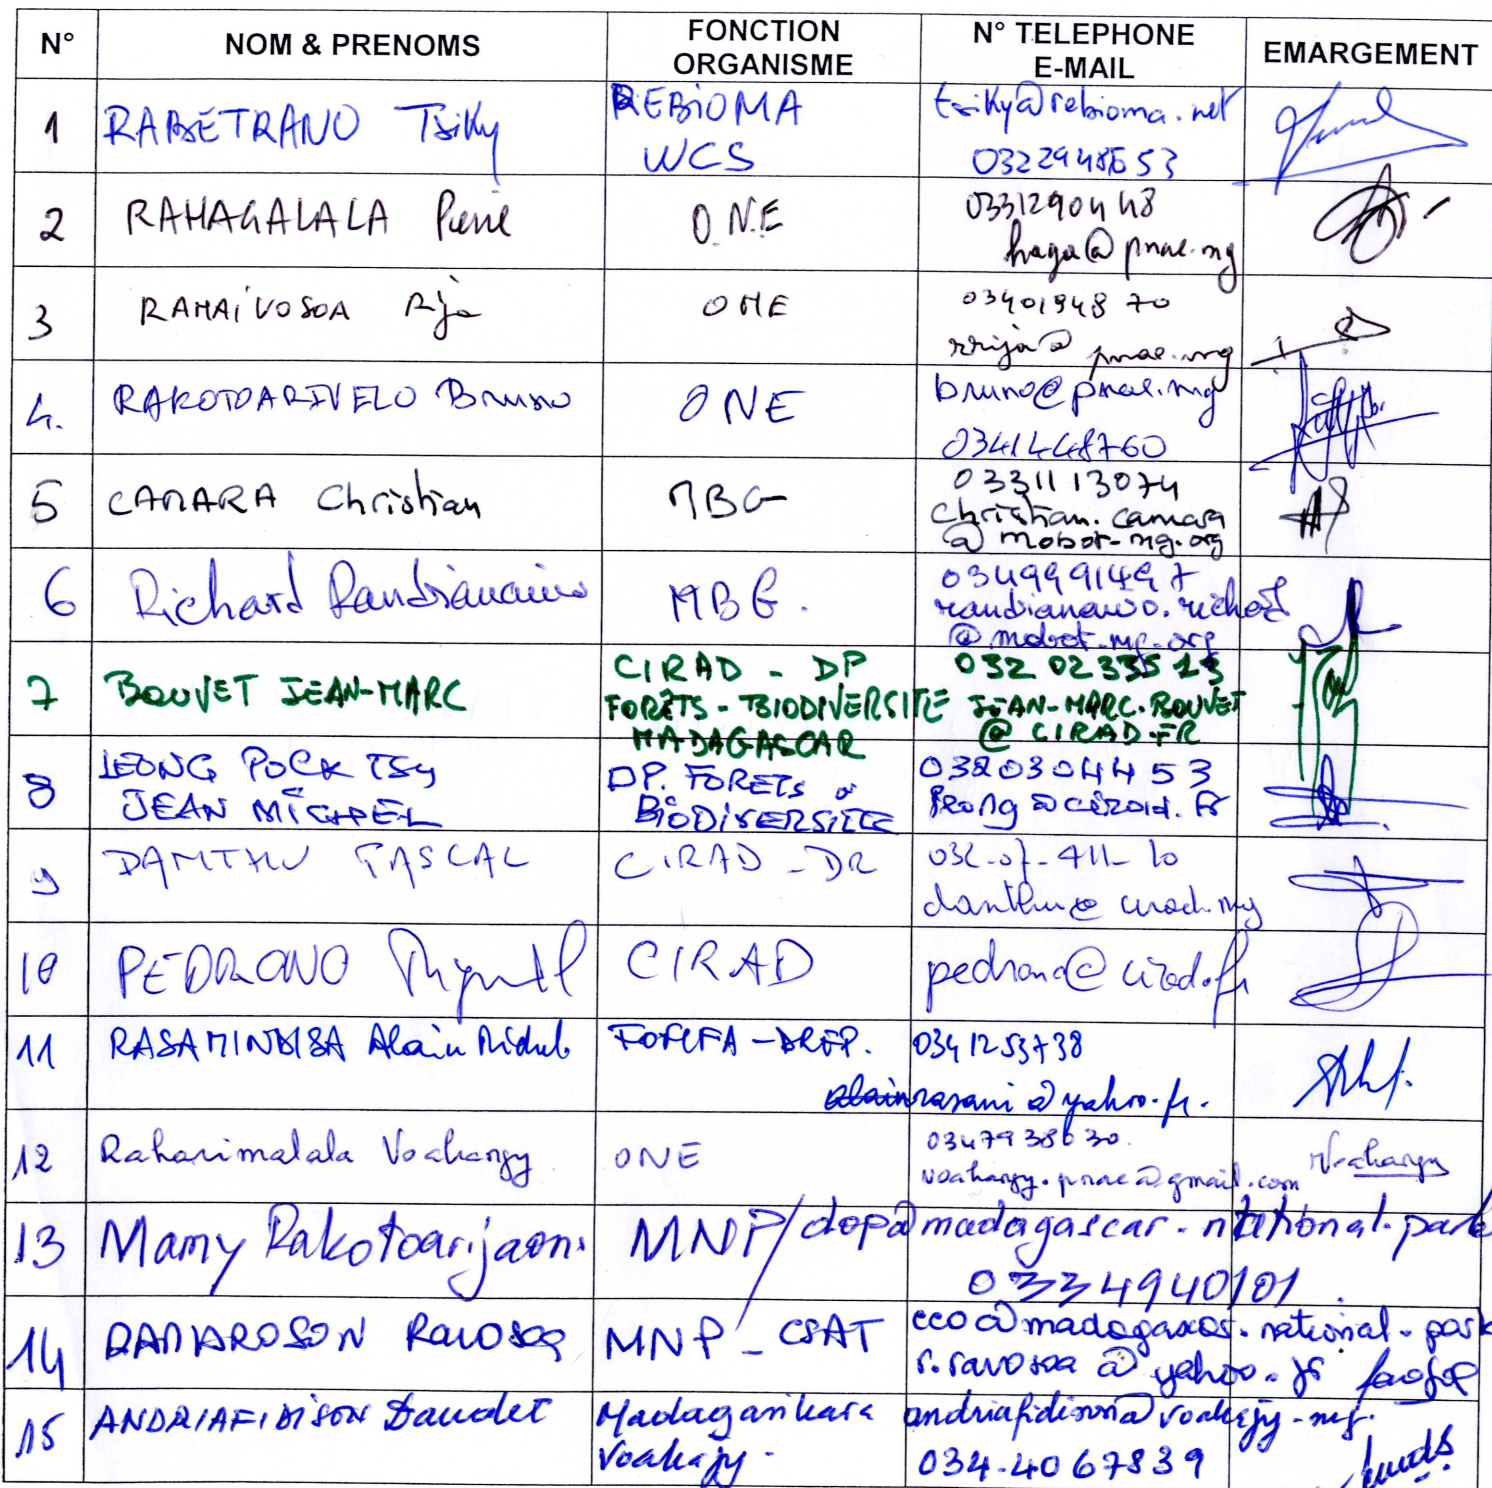 N°
NOM & PRENOMS
FONCTION
ORGANISME
N° TELEPHONE
E-MAIL
EMARGEMENT
1
RABETRANO Tsiky
REBIOMA
WCS
tsiky@rebioma.net
0322948653
2
RAHAGALALA Pierre
O.N.E
0331290448
haga@pnae.mg
3
RAMAIVOSOA Rija
ONE
0340194870
rrija@pnae.mg
4.
RAKOTOARIVELO Bruno
ONE
bruno@pnae.mg
0341448760
5
CAMARA Christian
MBG
0331113074
christian.camara
@mobot-mg.org
6
Richard Randrianaivo
MBG.
0349991497
randrianaivo.richard
@mobot-mg.org
7
BOUVET JEAN-MARC
CIRAD - DP
FORETS - BIODIVERSITE
MADAGASCAR
032 02 335 13
JEAN-MARC.BOUVET
@CIRAD.FR
8
LEONG POCK TSY
JEAN MICHEL
DP. FORETS &
BIODIVERSITE
0320304453
leong@cirad.fr
9
DANTHU PASCAL
CIRAD - DR
032-07-411-10
danthu@cirad.mg
10
PEDRONO Miguel
CIRAD
pedrono@cirad.fr
11
RASAMINDISA Alain Michel
FOFIFA - DRFP.
0341253738
alainrasami@yahoo.fr.
12
Raharimalala Voahangy
ONE
0347938630.
voahangy.pnae@gmail.com
Voahangy
13
Mamy Rakotoarijaona
MNP/dop@madagascar.national.park
0334940101
14
RAMAROSON Ravosoa
MNP - CSAT
cco@madagascar.national.park
r.ravosoa@yahoo.fr
15
ANDRIAFIDISON Daudet
Madagasikara
Voakajy.
andriafidison@voakajy.mg.
034.4067839